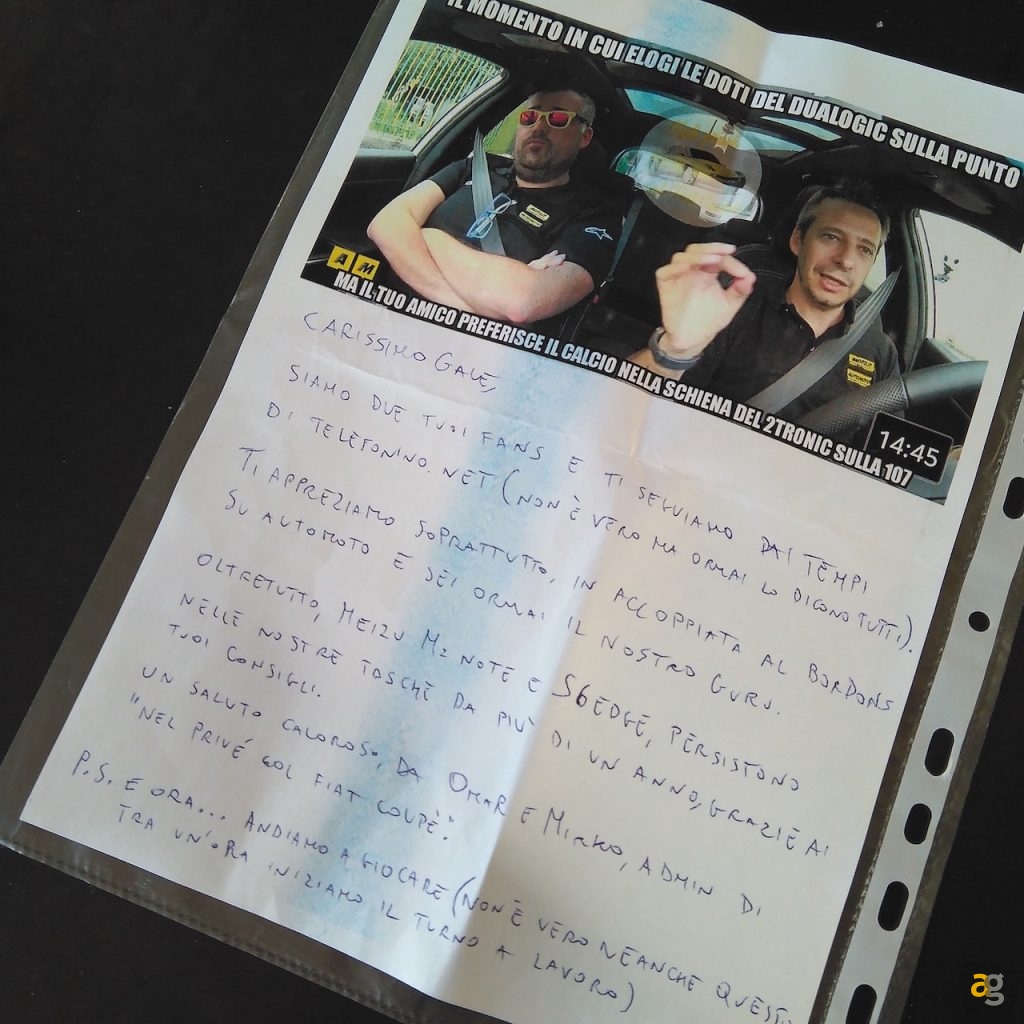 IL MOMENTO IN CUI ELOGI LE DOTI DEL DUALOGIC SULLA PUNTO
AM
MA IL TUO AMICO PREFERISCE IL CALCIO NELLA SCHIENA DEL 2TRONIC SULLA 107
14:45
CARISSIMO GALE,
SIAMO DUE TUOI FANS E TI SEGUIAMO DAI TEMPI
DI TELEFONINO.NET (NON È VERO MA ORMAI LO DICONO TUTTI).
TI APPREZIAMO SOPRATTUTTO, IN ACCOPPIATA AL BORDONS
SU AUTOMOTO E SEI ORMAI IL NOSTRO GURU.
OLTRETUTTO, MEIZU M2 NOTE E S6EDGE, PERSISTONO
NELLE NOSTRE TASCHE DA PIÙ DI UN ANNO, GRAZIE AI
TUOI CONSIGLI.
UN SALUTO CALOROSO, DA OMAR E MIRKO, ADMIN DI
"NEL PRIVÉ COL FIAT COUPÈ".
P.S. E ORA... ANDIAMO A GIOCARE (NON È VERO NEANCHE QUESTO
TRA UN'ORA INIZIAMO IL TURNO A LAVORO)
ag